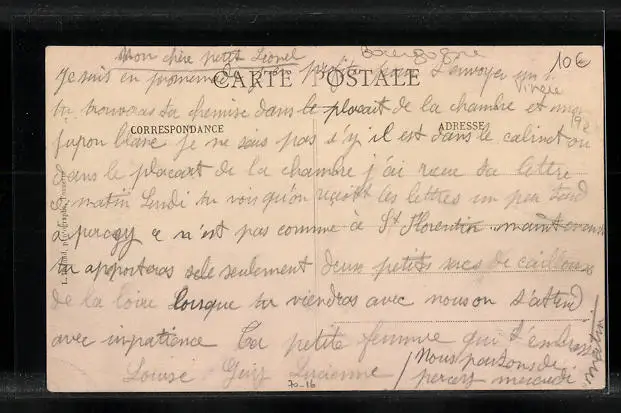 Mon chère petit Lionel
Bourgogne
10€
Je suis en promenade profite pour t'envoyer un
CARTE POSTALE
tu trouveras ta chemise dans le placait de la chambre et mon
CORRESPONDANCE
ADRESSE
jupon blanc je ne sais pas s'y il est dans le cabinet ou
dans le placart de la chambre j'ai reçue ta lettre
matin Lundi tu vois qu'on reçoit les lettres un peu tard
a percey ce n'est pas comme à St Florentin maintenant
tu apporteras seulement deux petits sacs de cailloux
de la loire lorsque tu viendras avec nous on s'attend
avec inpatience Ta petite femme qui t'embrasse
Louise Guy Lucienne
Nous partons de
percey mercredi
matin
70-16